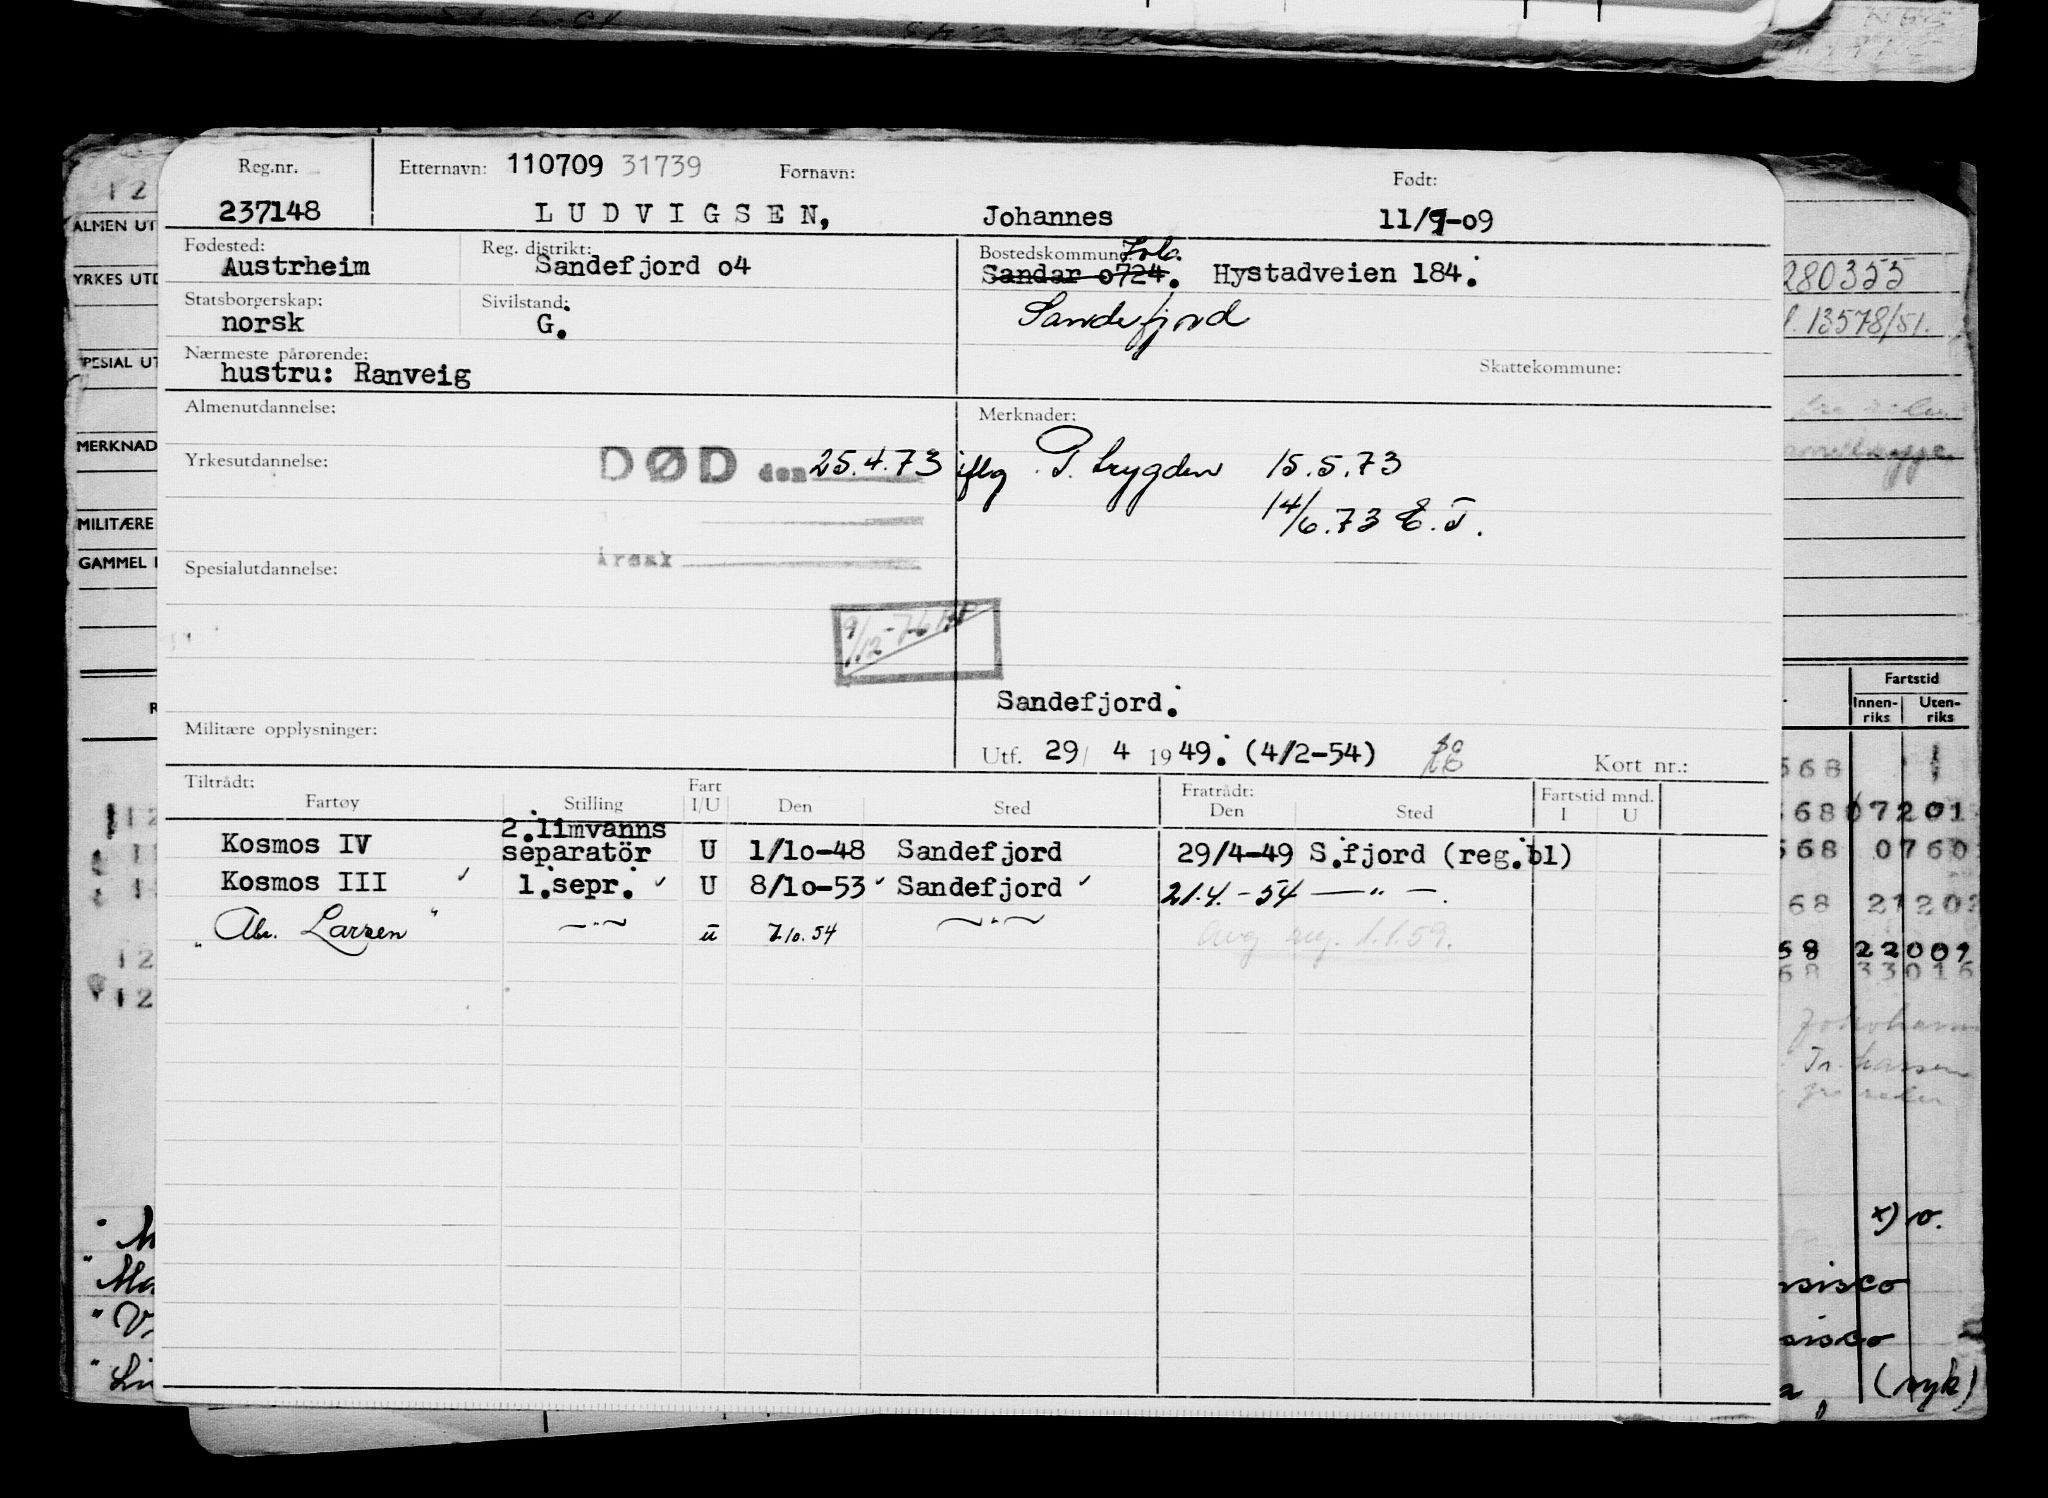 Reg.nr. Etternavn: 110709 31739 Fornavn: Født:
237148 LUDVIGSEN, Johannes 11/7-09
Fødested: Reg. distrikt: Bostedskommune:
Austrheim Sandefjord o4 Sandar o724. Hystadveien 184.
Statsborgerskap: Sivilstand: Sandefjord
norsk G.
Nærmeste pårørende: Skattekommune:
hustru: Ranveig
Almenutdannelse: Merknader:
Yrkesutdannelse: DØD den 25.4.73 iflg P. trygden 15.5.73
14/6.73 E.T.
Spesialutdannelse: årsak
9/12-76
Sandefjord.
Militære opplysninger: Utf. 29/ 4 1949. (4/2-54) Kort nr.:
Tiltrådt: Fratrådt: Fartstid mnd.
Fartøy Stilling Fart I/U Den Sted Den Sted I U
Kosmos IV 2.limvanns separatör U 1/1o-48 Sandefjord 29/4-49 S.fjord (reg.bl)
Kosmos III ✓ 1.sepr. ✓ U 8/1o-53 ✓ Sandefjord ✓ 21.4.-54 — " —.
"Abr. Larsen" —"— u 7.10.54 —"— Avg 1.1.59.
12
ALMEN UT
YRKES UTD
PESIAL UT
MERKNAD
MILITÆRE
GAMMEL
280355
13578/51.
Fartstid
Innen-riks Uten-riks
568
568 07201
568 0760
68 2120
68 22009
68 33016
x) o.
sisco
sisco
(syk)